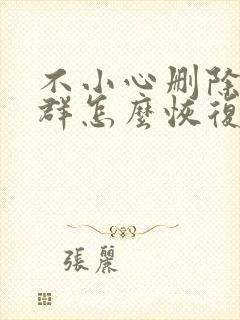 不小心删除
群怎麼恢復
張麗